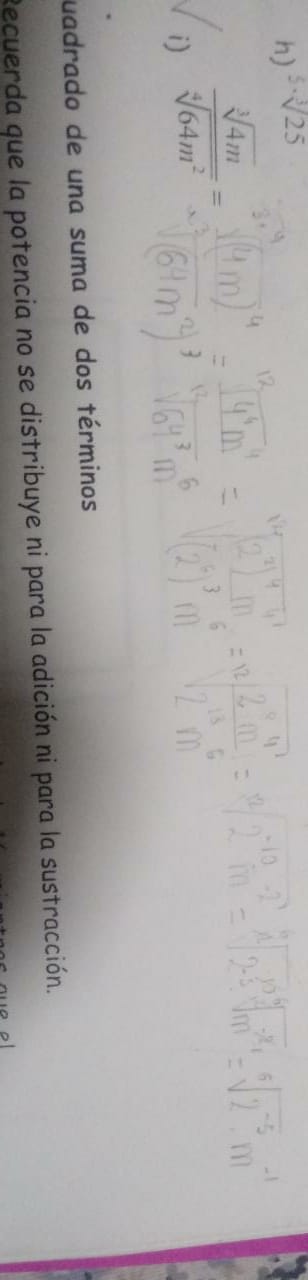 h) ⁵·³√25
i) ∛(4m) / ⁴√(64m²) = ³·⁴√(4m)⁴ / ⁴·³√(64m²)³ = ¹²√(4⁴m⁴) / ¹²√(64³m⁶) = ¹²√((2²)⁴m⁴) / √((2⁶)³m⁶) = ¹²√(2⁸m⁴ / 2¹⁸m⁶) = ¹²√(2⁻¹⁰m⁻²) = = ⁶√(2⁻⁵·m⁻¹)
uadrado de una suma de dos términos
Recuerda que la potencia no se distribuye ni para la adición ni para la sustracción.
que el